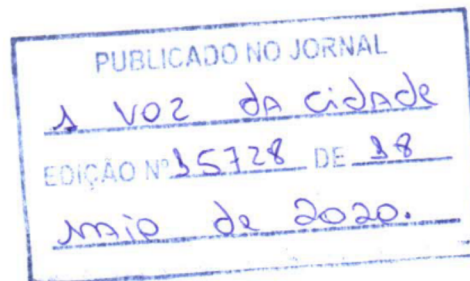 PUBLICADO NO JORNAL
A VOZ DA CIDADE
EDIÇÃO Nº 15728 DE 18
MAIO DE 2020.